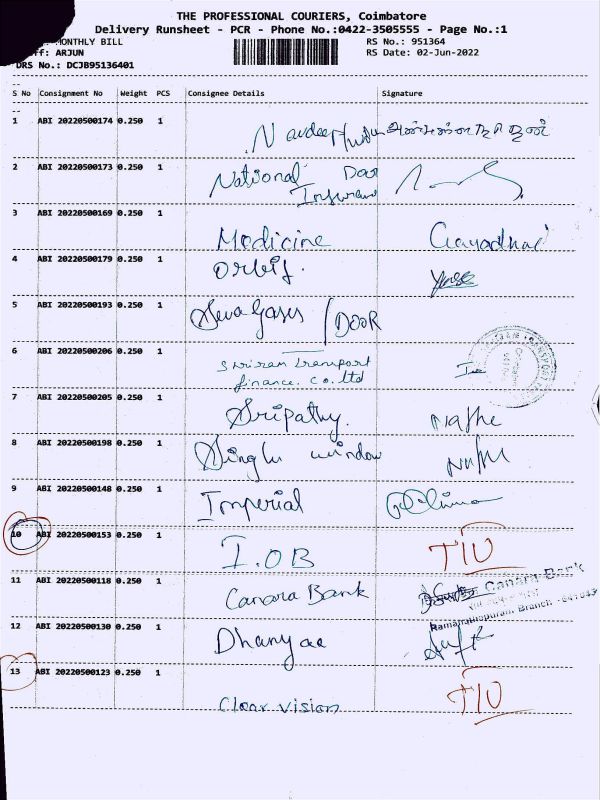 THE PROFESSIONAL COURIERS, Coimbatore
Delivery Runsheet - PCR - Phone No.:0422-3505555 - Page No.:1
MONTHLY BILL RS No.: 951364
ff: ARJUN RS Date: 02-Jun-2022
DRS No.: DCJB95136401
S No Consignment No Weight PCS Consignee Details Signature
1 ABI 20220500174 0.250 1
2 ABI 20220500173 0.250 1 National Door
Insurance
3 ABI 20220500169 0.250 1 Medicine Gayadhri
4 ABI 20220500179 0.250 1 Orbit.
5 ABI 20220500193 0.250 1 Seva Gases / DOOR
6 ABI 20220500206 0.250 1 Shriram transport
finance. co. ltd
7 ABI 20220500205 0.250 1 Sripathy.
8 ABI 20220500198 0.250 1 Singhu window
9 ABI 20220500148 0.250 1 Imperial
10 ABI 20220500153 0.250 1 I.OB TIU
11 ABI 20220500118 0.250 1 Canara Bank Canara Bank
Ramanathapuram Branch - 641045
12 ABI 20220500130 0.250 1 Dhanyaa
13 ABI 20220500123 0.250 1 Clear vision TIU